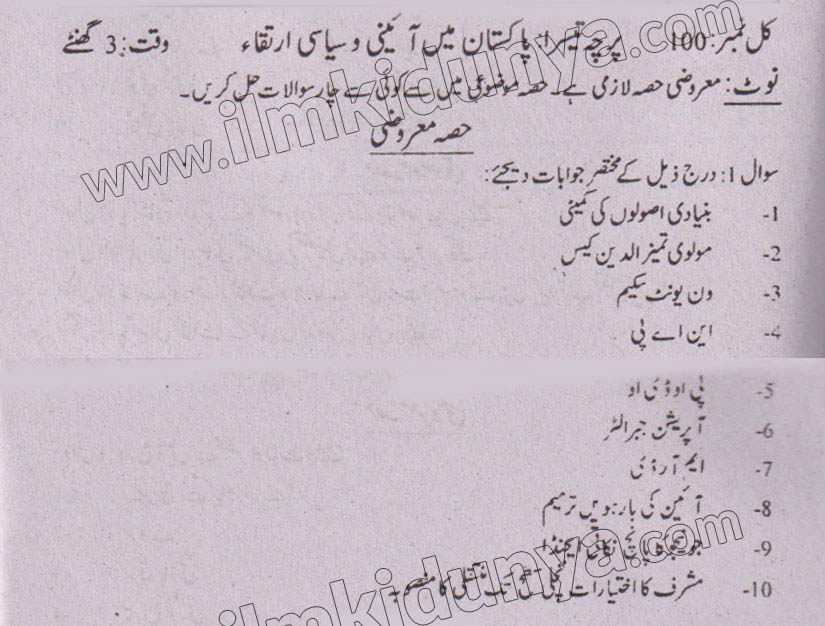 کل نمبر: 100 پرچہ تیسرا: پاکستان میں آئینی و سیاسی ارتقاء وقت: 3 گھنٹے
نوٹ: معروضی حصہ لازمی ہے۔ حصہ موضوعی میں سے کوئی سے چار سوالات حل کریں۔
حصہ معروضی
سوال 1: درج ذیل کے مختصر جوابات دیجئے:
1- بنیادی اصولوں کی کمیٹی
2- مولوی تمیز الدین کیس
3- ون یونٹ سکیم
4- این اے پی
5- پی او ڈی او
6- آپریشن جبرالٹر
7- ایم آر ڈی
8- آئین کی بارہویں ترمیم
9- جونیجو کا پانچ نکاتی ایجنڈا
10- مشرف کا اختیارات نچلی سطح تک منتقلی کا منصوبہ
www.ilmkidunya.com
ilmkidunya.com